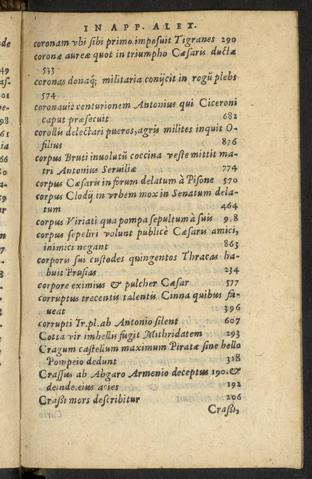 IN APP. ALEX.
coronam vbi sibi primo imposuit Tigranes 290
coronæ aureæ quot in triumpho Cæsaris ductæ
533
coronas donaq; militaria conijcit in rogũ plebs
574
coronauit centurionem Antonius qui Ciceroni
caput præsecuit 682
corollis delectari pueros, agris milites inquit O-
filius 876
corpus Bruti inuolutũ coccina veste mittit ma-
tri Antonius Seruiliæ 774
corpus Cæsaris in forum delatum à Pisone 570
corpus Clodij in vrbem mox in Senatum dela-
tum 464
corpus Viriati qua pompa sepultum à suis
corpus sepeliri volunt publicè Cæsaris amici,
inimici negant 863
corporis sui custodes quingentos Thracas ha-
buit Prusias 234
corpore eximius & pulcher Cæsar 577
corruptus trecentis talentis Cinna quibus fa-
ueat 396
corrupti Tr. pl. ab Antonio silent 607
Cotta vir imbellis fugit Mithridatem 293
Cragum castellum maximum Piratæ sine bello
Pompeio dedunt 318
Crassus ab Abgaro Armenio deceptus 190. &
deinde. eius acies 192
Crassi mors describitur 206
Crassi,